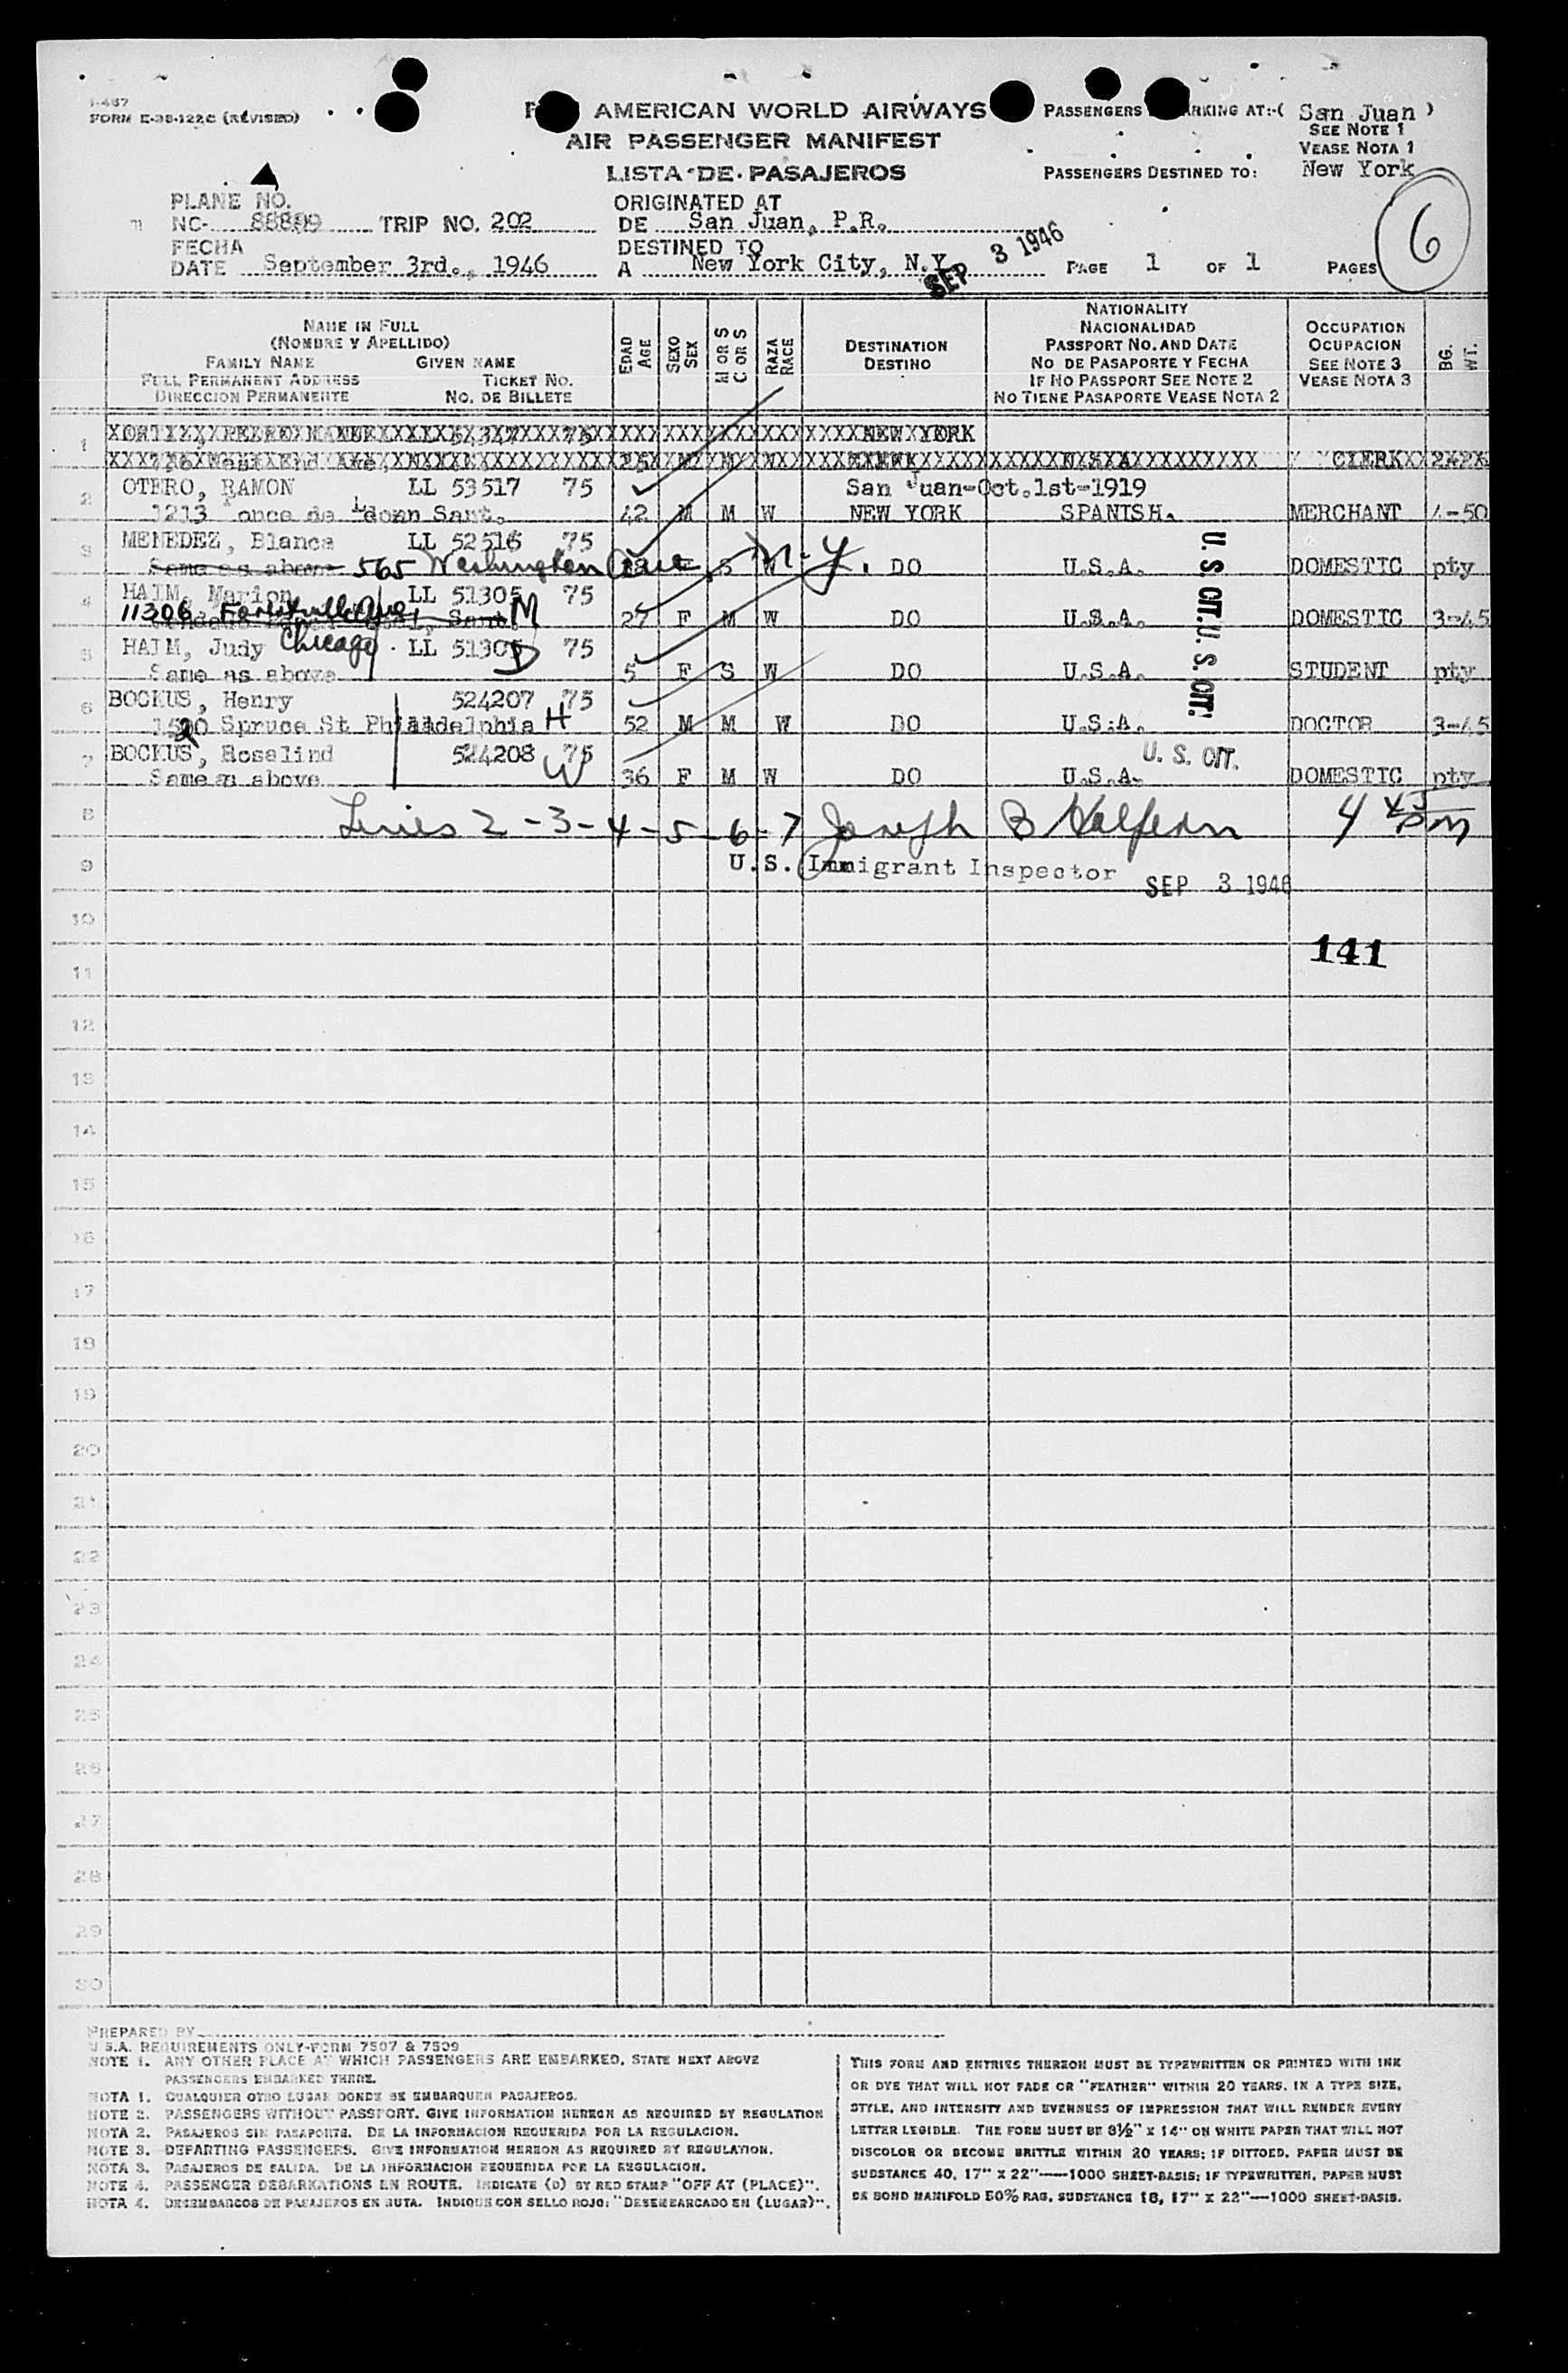 I-467
FORM E-38-122C (REVISED)
AMERICAN WORLD AIRWAYS
AIR PASSENGER MANIFEST
LISTA DE PASAJEROS
PASSENGERS ARKING AT:-( San Juan )
SEE NOTE 1
VEASE NOTA 1
PASSENGERS DESTINED TO: New York
6
PLANE NO.
NC- TRIP NO. 202
ORIGINATED AT
DE San Juan, P.R.
FECHA
DATE September 3rd., 1946
DESTINED TO
A New York City, N.Y.
SEP 3 1946
PAGE 1 OF 1 PAGES
NAME IN FULL
(NOMBRE Y APELLIDO)
FAMILY NAME GIVEN NAME
FULL PERMANENT ADDRESS TICKET NO.
DIRECCION PERMANENTE NO. DE BILLETE
EDAD AGE
SEXO SEX
M OR S C OR S
RAZA RACE
DESTINATION
DESTINO
NATIONALITY
NACIONALIDAD
PASSPORT NO. AND DATE
NO DE PASAPORTE Y FECHA
IF NO PASSPORT SEE NOTE 2
NO TIENE PASAPORTE VEASE NOTA 2
OCCUPATION
OCUPACION
SEE NOTE 3
VEASE NOTA 3
BG. WT.
1 NEW YORK
CLERK
2 OTERO, RAMON LL 53517 75 San Juan-Oct.1st-1919
1213 Ponce de Leon Sant. 42 M M W NEW YORK SPANISH. MERCHANT 4-50
3 MENEDEZ, Blanca LL 52516 75
Same as above 565 Washington Ave, N.Y. S W DO U.S.A. DOMESTIC pty
4 HAIM, Marion LL 51305 75
11306 Sant. M 27 F M W DO U.S.A. DOMESTIC 3-45
5 HAIM, Judy Chicago LL 51305 75
Same as above D 5 F S W DO U.S.A. STUDENT pty
6 BOCKUS, Henry 524207 75
Spruce St Philadelphia H 52 M M W DO U.S.A. DOCTOR 3-45
7 BOCKUS, Rosalind 524208 75
Same as above W 36 F M W DO U.S.A. DOMESTIC pty
U.S. CIT.
U.S. CIT.
U. S. CIT.
8 Lines 2-3-4-5-6-7 Joseph B Halfern 4 45 PM
9 U.S. Immigrant Inspector
SEP 3 1946
10
141
11
12
13
14
15
16
17
18
19
20
21
22
23
24
25
26
27
28
29
30
PREPARED BY
U.S.A. REQUIREMENTS ONLY-FORM 7507 & 7509
NOTE 1. ANY OTHER PLACE AT WHICH PASSENGERS ARE EMBARKED, STATE NEXT ABOVE
PASSENGERS EMBARKED THERE.
NOTA 1. CUALQUIER OTRO LUGAR DONDE SE EMBARQUEN PASAJEROS.
NOTE 2. PASSENGERS WITHOUT PASSPORT. GIVE INFORMATION HEREON AS REQUIRED BY REGULATION
NOTA 2. PASAJEROS SIN PASAPORTE. DE LA INFORMACION REQUERIDA POR LA REGULACION.
NOTE 3. DEPARTING PASSENGERS. GIVE INFORMATION HEREON AS REQUIRED BY REGULATION.
NOTA 3. PASAJEROS DE SALIDA. DE LA INFORMACION REQUERIDA POR LA REGULACION.
NOTE 4. PASSENGER DEBARKATIONS EN ROUTE. INDICATE (D) BY RED STAMP "OFF AT (PLACE)".
NOTA 4. DESEMBARCOS DE PASAJEROS EN RUTA. INDIQUE CON SELLO ROJO: "DESEMBARCADO EN (LUGAR)".
THIS FORM AND ENTRIES THEREON MUST BE TYPEWRITTEN OR PRINTED WITH INK
OR DYE THAT WILL NOT FADE OR "FEATHER" WITHIN 20 YEARS. IN A TYPE SIZE,
STYLE, AND INTENSITY AND EVENNESS OF IMPRESSION THAT WILL RENDER EVERY
LETTER LEGIBLE. THE FORM MUST BE 8½" X 14" ON WHITE PAPER THAT WILL NOT
DISCOLOR OR BECOME BRITTLE WITHIN 20 YEARS; IF DITTOED, PAPER MUST BE
SUBSTANCE 40, 17" X 22"—1000 SHEET-BASIS; IF TYPEWRITTEN, PAPER MUST
BE BOND MANIFOLD 50% RAG, SUBSTANCE 18, 17" X 22"—1000 SHEET-BASIS.